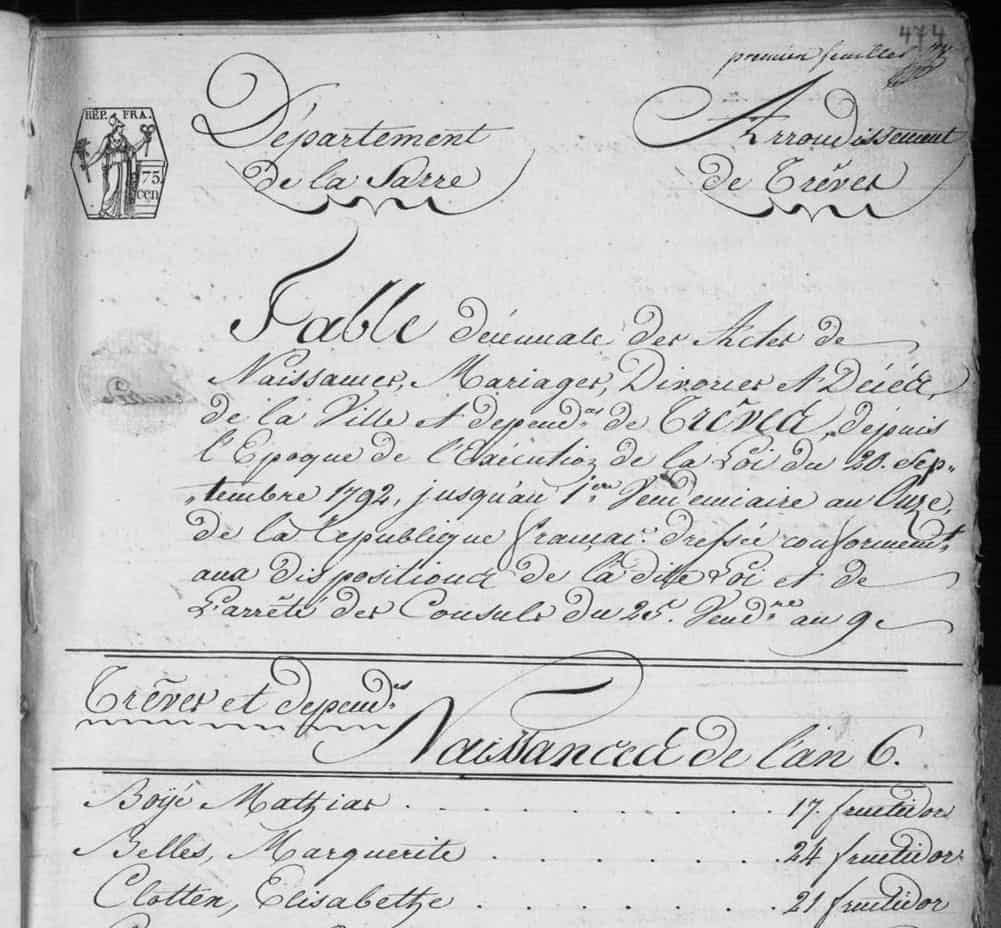 474
premier feuillet
RÉP. FRA.
75
cen
Département
de la Sarre
Arrondissement
de Trêves
Table décennale des Actes de
Naissances, Mariages, Divorces et Décès,
de la Ville et depend.ces de Trêves, depuis
l'Epoque de l'Exécution de la Loi du 20. Sep-
-tembre 1792, jusqu'au 1.er Vendemiaire an Onze,
de la republique françai.e dressée conformem.t
aux dispositions de la dite Loi et de
L'arrêté des Consuls du 25. Vend.re an 9.
Trêves et depend.ces
Naissances de l'an 6.
Boÿé Mathias . . . . . . . . 17 fructidor
Belles, Marguerite . . . . . . . 24 fructidor
Clotten, Elisabethe . . . . . . . 21 fructidor